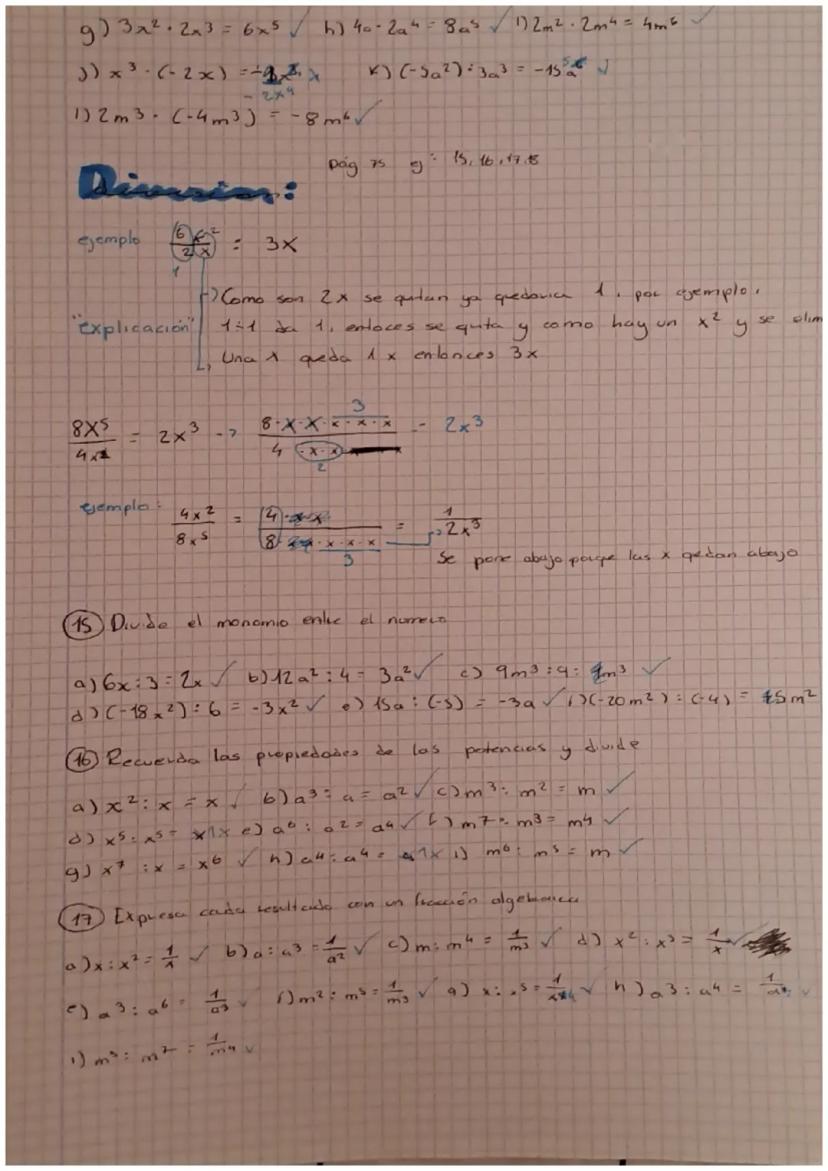 g) 3x² · 2x³ = 6x⁵ ✓ h) 4a · 2a⁴ = 8a⁵ ✓ i) 2m² · 2m⁴ = 4m⁶ ✓
j) x³ · (-2x) = x
- 2x⁴
K) (-5a²) · 3a³ = -15a⁵ ✓
l) 2m³ · (-4m³) = -8m⁶ ✓
Pág 75 ej: 15, 16, 17, 18
Division:
ejemplo 6x²/2x = 3x
1
Como son 2x se quitan ya quedaria 1, por ejemplo.
"explicación" 1÷1 da 1, entoces se quta y como hay un x² y se elim
Una x queda 1x entonces 3x
8x⁵/4x² = 2x³ -> 8·x·x·x·x·x/4·x·x = 2x³
3
2
ejemplo: 4x²/8x⁵ = 4·x·x/8·x·x·x·x·x = 1/2x³
3
Se pone abajo porque las x quedan abajo
15 Divide el monomio entre el numero
a) 6x : 3 = 2x ✓ b) 12a² : 4 = 3a² ✓ c) 9m³ : 9 = 1m³ ✓
d) (-18x²) : 6 = -3x² ✓ e) 15a : (-5) = -3a ✓ f) (-20m²) : (-4) = 5m²
16 Recuerda las propiedades de las potencias y divide
a) x² : x = x ✓ b) a³ : a = a² ✓ c) m³ : m² = m ✓
d) x⁵ : x⁵ = 1 x e) a⁶ : a² = a⁴ ✓ f) m⁷ : m³ = m⁴ ✓
g) x⁷ : x = x⁶ ✓ h) a⁴ : a⁴ = 1 x i) m⁶ : m⁵ = m ✓
17 Expresa cada resultado con un fracción algebraica
a) x : x² = 1/x ✓ b) a : a³ = 1/a² ✓ c) m : m⁴ = 1/m³ ✓ d) x² : x³ = 1/x ✓
e) a³ : a⁶ = 1/a³ ✓ f) m² : m⁵ = 1/m³ ✓ g) x : x⁵ = 1/x⁴ ✓ h) a³ : a⁴ = 1/a ✓
i) m³ : m⁷ = 1/m⁴ ✓